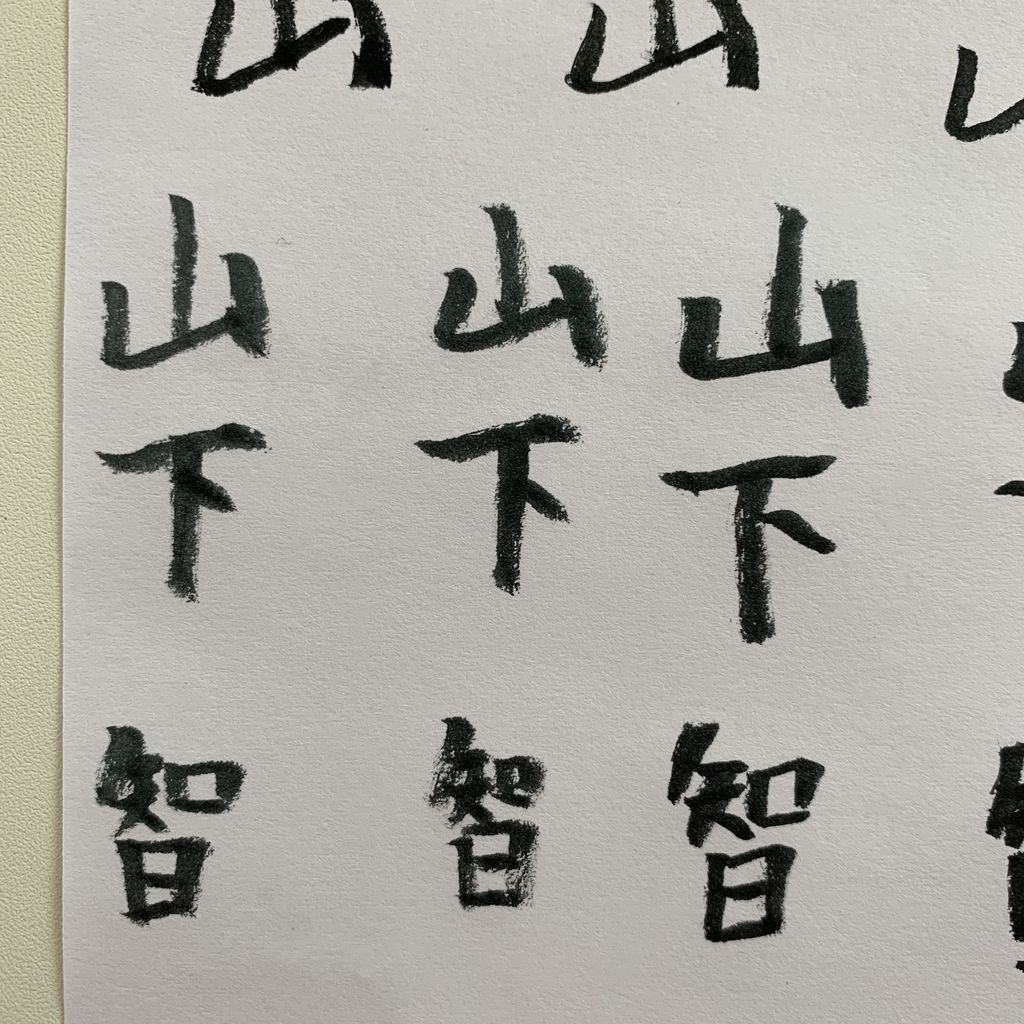 山 山
山 山 山
下 下 下
智 智 智